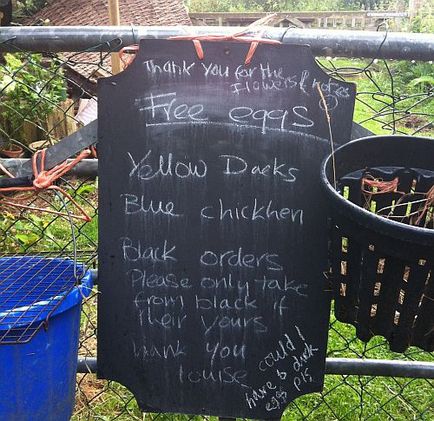 Thank you for the
flowers & notes
Free eggs
Yellow Ducks
Blue chickhen
Black orders
Please only take
from black if
their yours
Thank you
louise
could I
have 6 duck
eggs Pls